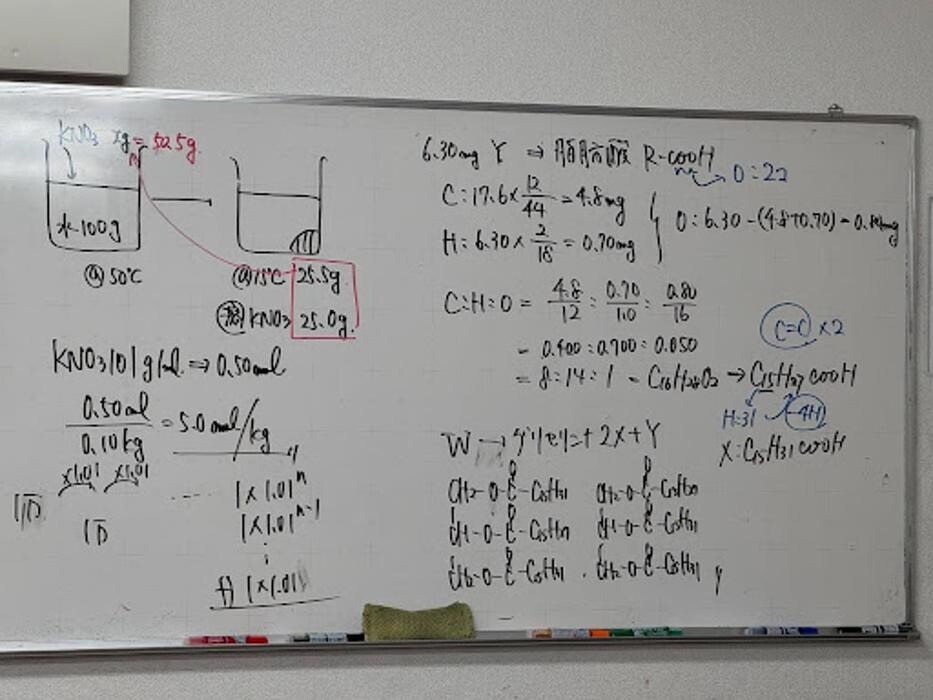 KNO₃ xg = 52.5g
水100g
@50℃
@15℃ 25.5g
KNO₃ 25.0g
KNO₃ 101g/mol ⇒ 0.50mol
0.50mol / 0.10kg = 5.0mol/kg
×1.01 ×1.01
1万 1万 ---- 1×1.01ⁿ
1×1.01ⁿ⁻¹
⋮
+) 1×1.01
6.30mg Y ⇒ 脂肪酸 R-COOH → O:2コ
C:17.6×12/44=4.8mg
H:6.30×2/18=0.70mg
O:6.30-(4.8+0.70)=0.80mg
C:H:O = 4.8/12 : 0.70/1.0 : 0.80/16
= 0.400:0.700:0.050
= 8:14:1 → C₁₆H₂₈O₂ → C₁₅H₂₇COOH
C=C ×2
H:31 -4H
X:C₁₅H₃₁COOH
W → グリセリン+2X+Y
CH₂-O-C-C₁₅H₃₁ CH₂-O-C-C₁₅H₂₇
CH-O-C-C₁₅H₂₇ CH-O-C-C₁₅H₃₁
CH₂-O-C-C₁₅H₃₁ , CH₂-O-C-C₁₅H₃₁